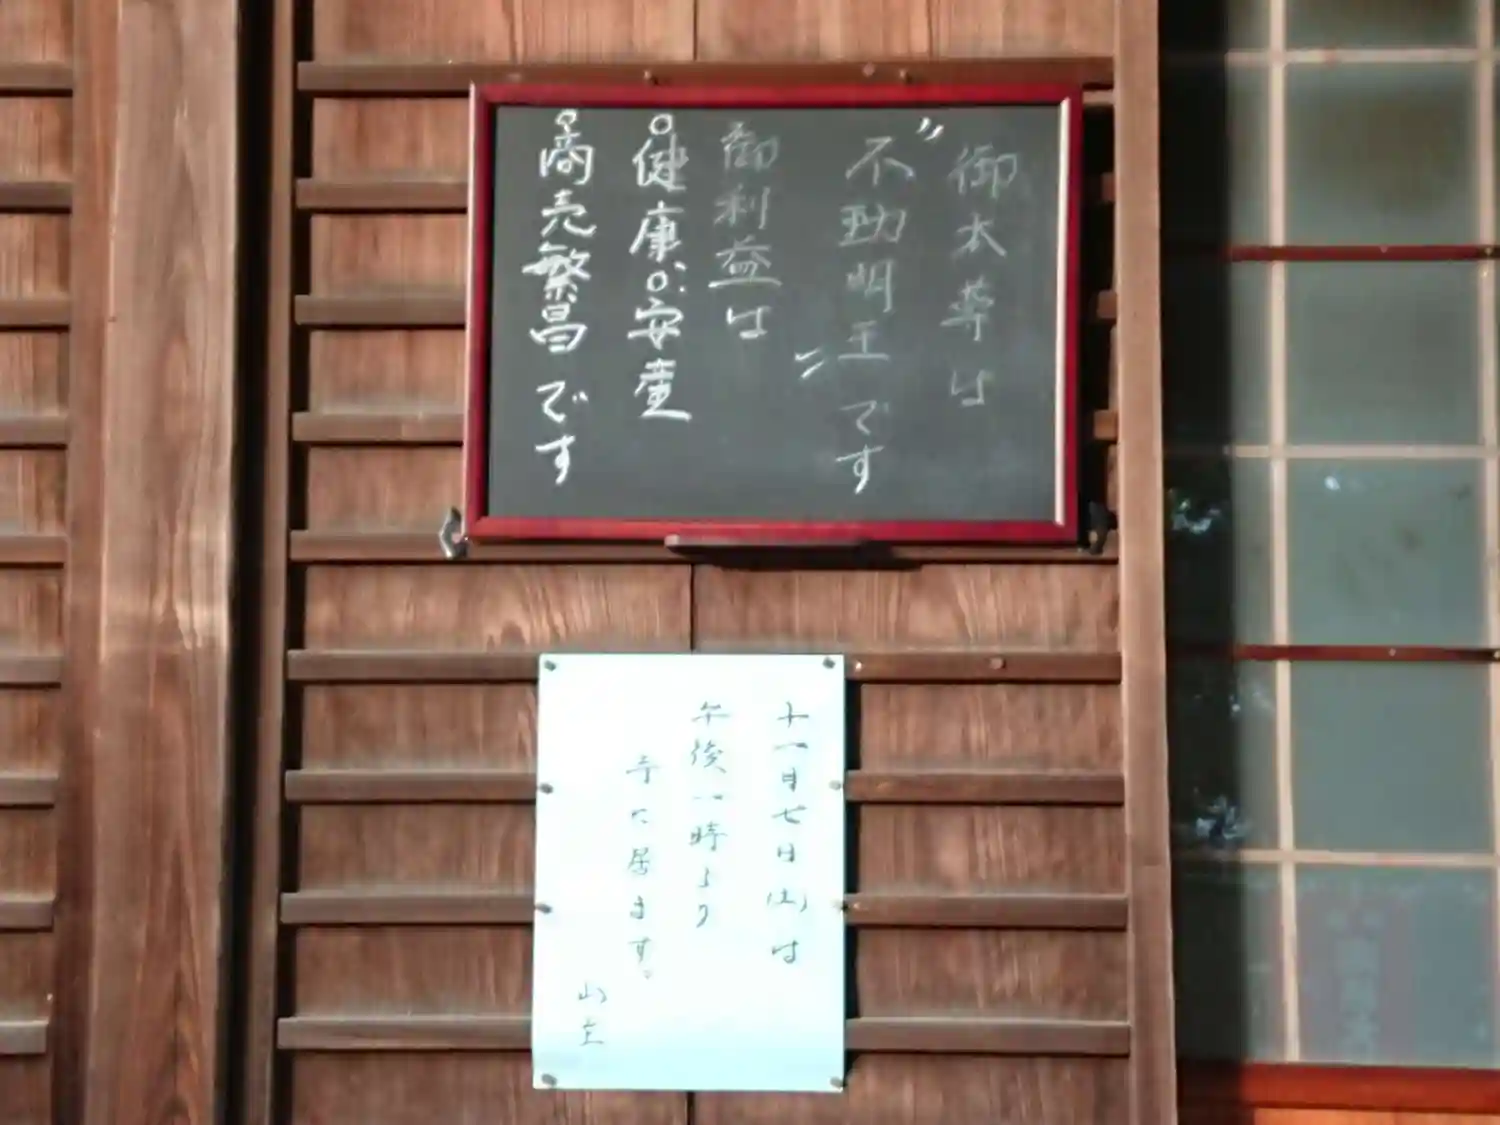 御本尊は
"不動明王です"
御利益は
○健康○安産
○商売繁昌です
十一月七日(土)は
午後一時より
寺に居ます。
山主